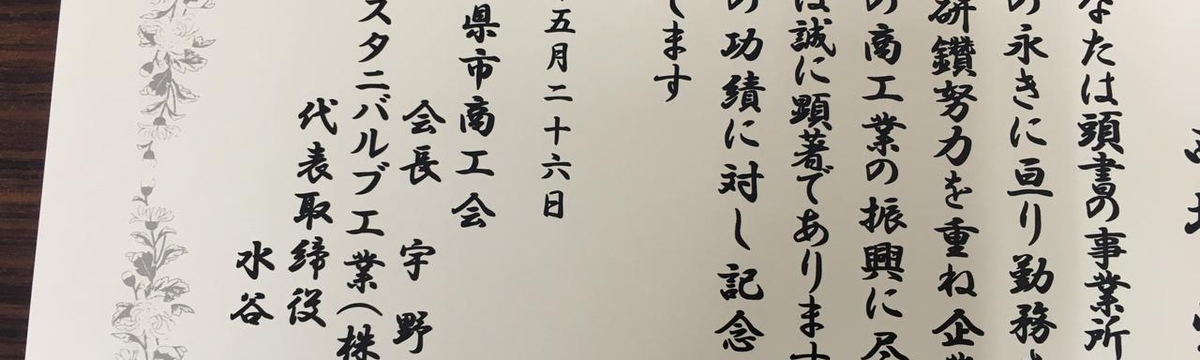 なたは頭書の事業所
の永きに亘り勤務
研鑽努力を重ね企業
の商工業の振興に尽
は誠に顕著であります
の功績に対し記念
します
五月二十六日
県市商工会
会長 宇野
スタニバルブ工業(株
代表取締役
水谷